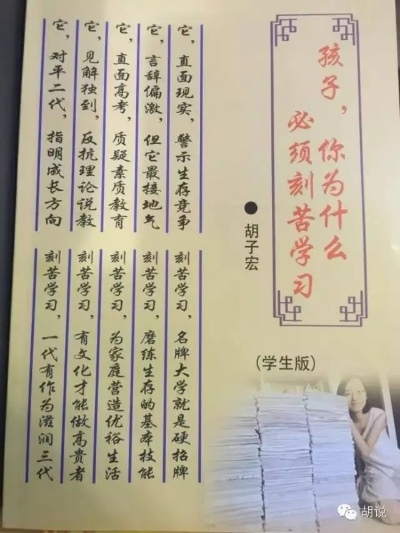 孩子，你为什么
必须刻苦学习
●胡子宏
（学生版）
它，直面现实，警示生存竞争
它，言辞偏激，但它最接地气
它，直面高考，质疑素质教育
它，见解独到，反抗理论说教
它，对平二代，指明成长方向
刻苦学习，名牌大学就是硬招牌
刻苦学习，磨练生存的基本技能
刻苦学习，为家庭营造优裕生活
刻苦学习，有文化才能做高贵者
刻苦学习，一代有作为滋润三代
胡说